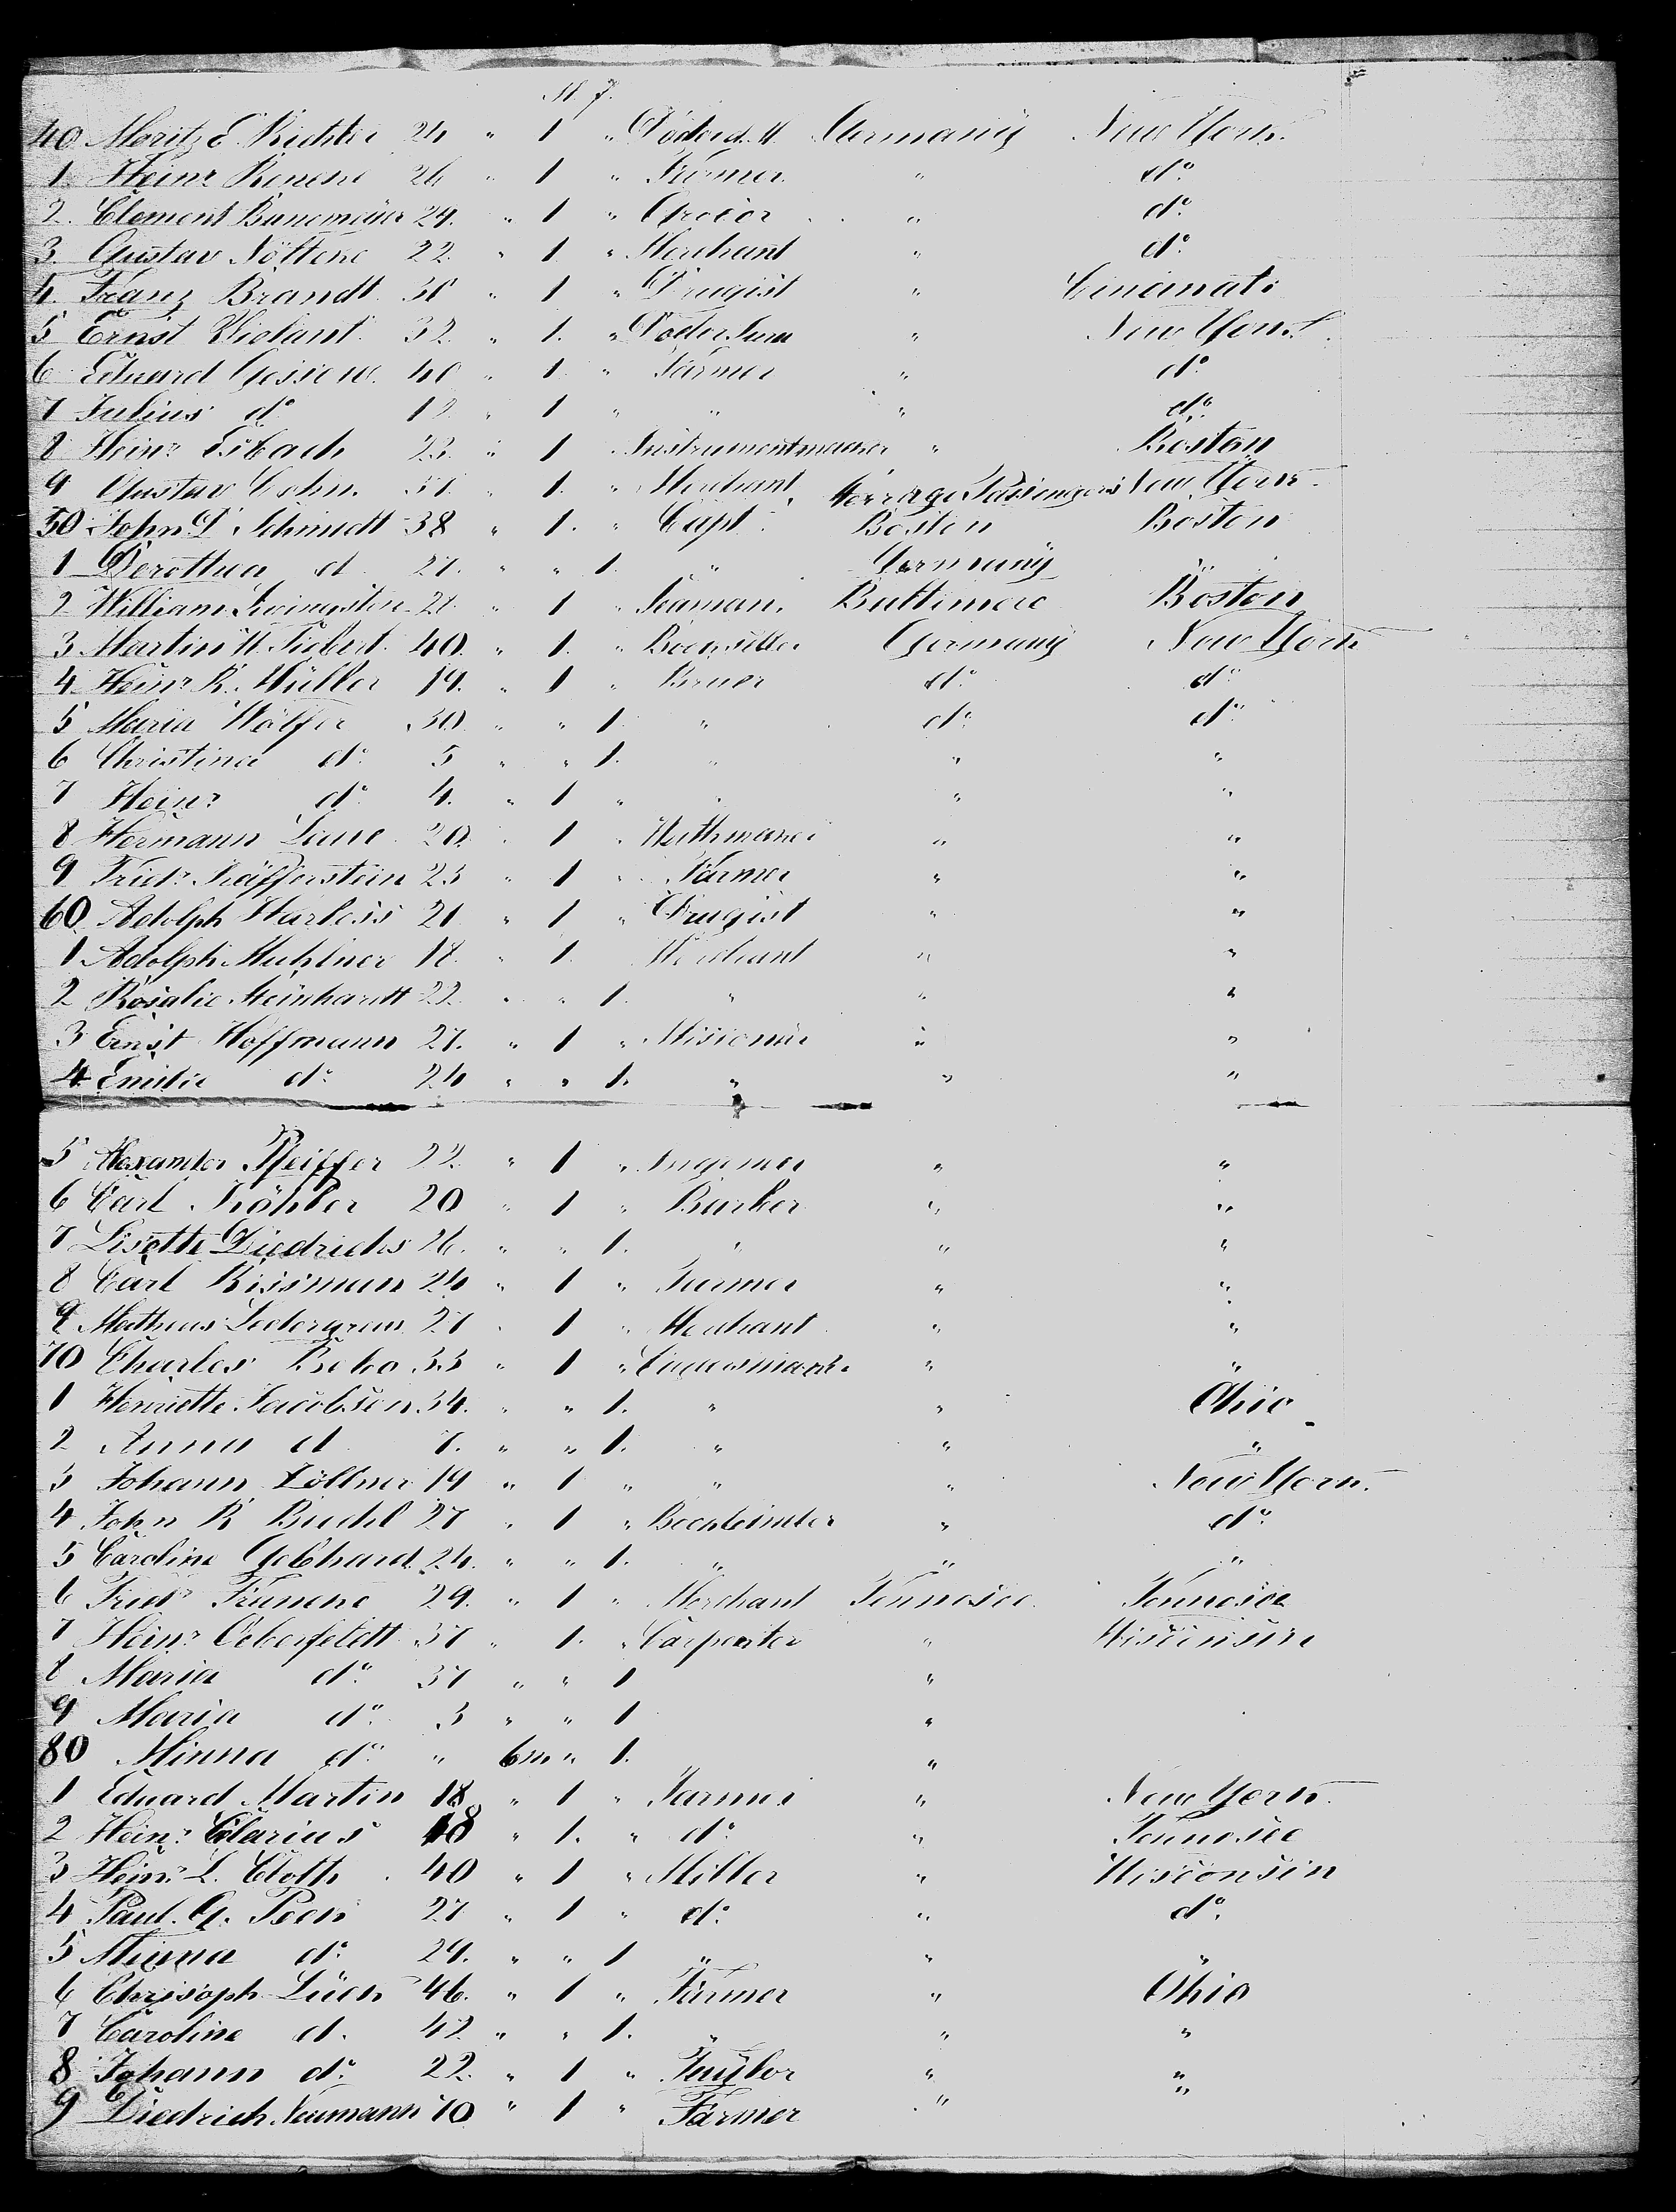 M. f.
40 Moritz E Richter 24 " 1 " Germany New York
1 Heinr 26 " 1 " " do
2 Clement 29. " 1 " Grocer " do
3 Gustav Nöltene 22. " 1 " Merchant " do
4 Franz Brandt 30 " 1 " Drugist " Cincinati
5 Ernst Wielant 32. " 1. " " New York
6 Eduard Gossow 40 " 1 " Farmer " do
7 Julius do 12 " 1 " " " do
8 Heinr Esbach 23. " 1 Instrumentmaker " Boston
9 Gustav Cohn. 51. " 1. " Merchant New York
Passengers
50 John D Schmidt 38 " 1. " Capt. Boston Boston
1 Dorothea d 27. " " 1. " Germany "
2 William Livingston 21. " 1 " Seaman. Baltimore Boston
3 Martin H. Siebert 40. " 1. " Bookseller Germany New York
4 Heinr R. Müller 19. " 1 " Bruer do do
5 Maria Wölfer 30. " " 1. " do do
6 Christina do 5 " " 1. " " "
7 Heinr do 4. " 1 " " " "
8 Hermann 20. " 1 " " "
9 Friedr Käfferstein 23 " 1 " Farmer " "
60 Adolph Harless 21 " 1 " Drugist " "
1 Adolph Muhlner 18 " 1. Merchant " "
2 Rosalie Meinhardt 22. " " 1. " " "
3 Ernst Hoffmann 27. " 1 " Misionär " "
4 Emilie do 24 " " 1. " " "
5 Alexander Pfeiffer 22. " 1 " " "
6 Carl Köhler 20 " 1 " Barber " "
7 Lisette Diedrichs 26. " " 1. " " "
8 Carl Rissman 24 " 1 " Farmer " "
9 Matheus 27 " 1 " Merchant " "
70 Charles 33 " 1 " "  "
1 Henriette Jacobsen 34. " " 1. " " Ohio
2 Anna d 7. " " 1. " " "
3 Johann Zöllner 19 " 1 " " " New York.
4 John R Biechl 27 " 1 " Bookbinder " do
5 Caroline Gebhard 24. " " 1. " " "
6 Friedr 29. " 1 " Merchant Tennesee Tennesee
7 Heinr Oeberfeldt 37 " 1. " Carpenter " Wisconsin
8 Maria do 37 " " 1 "
9 Maria do 3 " " 1 "
80 Minna do " 6m " 1. "
1 Eduard Martin 18 " 1 " Farmer " New York
2 Heinr Clarius 18 " 1. " do " Tennesee
3 Heinr L. Cloth 40 " 1 " Miller " Wisconsin
4 Paul. G. Peck 27 " 1 " do " do
5 Minna do 29. " " 1 " " "
6 Chrisoph Lück 46. " 1 " Farmer " Ohio
7 Caroline d. 42 " " 1. " " "
8 Johann do 22. " 1 " Taylor " "
9 Diedrich Neumann 10 " 1 " Farmer " "